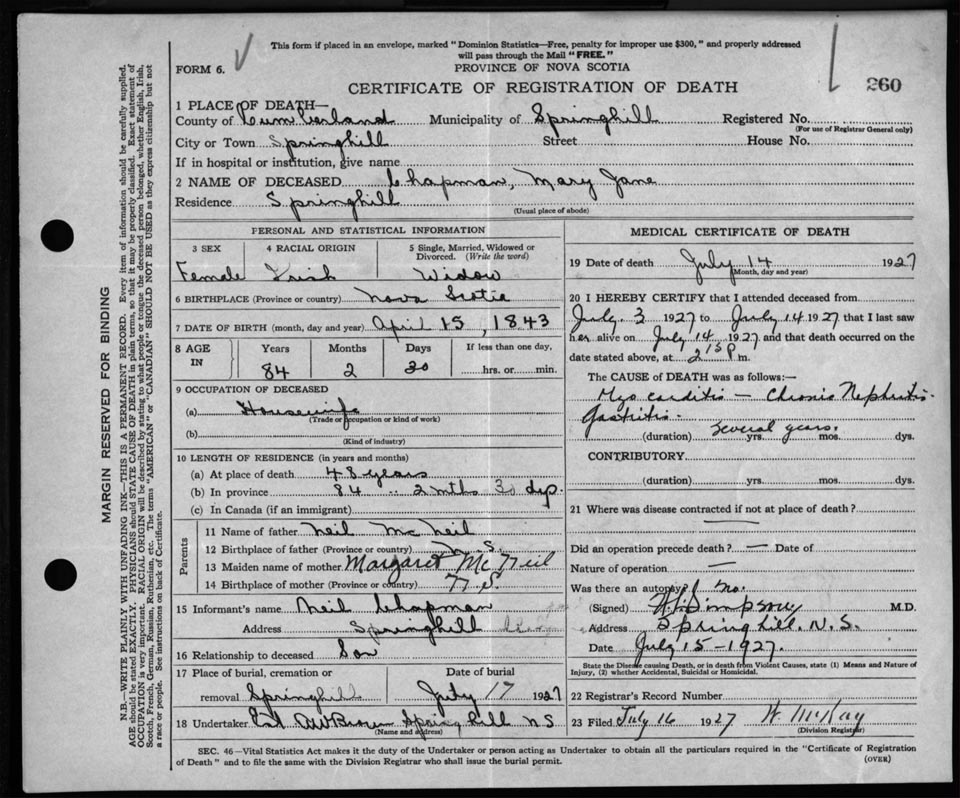 This form if placed in an envelope, marked "Dominion Statistics—Free, penalty for improper use $300," and properly addressed
will pass through the Mail "FREE."
FORM 6.
PROVINCE OF NOVA SCOTIA
CERTIFICATE OF REGISTRATION OF DEATH
260
1 PLACE OF DEATH—
County of Cumberland Municipality of Springhill Registered No.
(For use of Registrar General only)
City or Town Springhill Street House No.
If in hospital or institution, give name
2 NAME OF DECEASED Chapman, Mary Jane
Residence Springhill
(Usual place of abode)
PERSONAL AND STATISTICAL INFORMATION
3 SEX 4 RACIAL ORIGIN 5 Single, Married, Widowed or
Divorced. (Write the word)
Female Irish Widow
6 BIRTHPLACE (Province or country) Nova Scotia
7 DATE OF BIRTH (month, day and year) April 15, 1843
8 AGE IN Years Months Days If less than one day,
84 2 30 hrs. or min.
9 OCCUPATION OF DECEASED
(a) Housewife
(Trade or occupation or kind of work)
(b)
(Kind of industry)
10 LENGTH OF RESIDENCE (in years and months)
(a) At place of death 48 years
(b) In province 84 .. 2 mths 30 dys.
(c) In Canada (if an immigrant)
Parents
11 Name of father Neil McNeil
12 Birthplace of father (Province or country) N.S.
13 Maiden name of mother Margaret McNeil
14 Birthplace of mother (Province or country) N.S.
15 Informant's name Neil Chapman
Address Springhill
16 Relationship to deceased Son
17 Place of burial, cremation or Date of burial
removal Springhill July 17 1927
18 Undertaker A W Brown Springhill NS
(Name and address)
MEDICAL CERTIFICATE OF DEATH
19 Date of death July 14 1927
(Month, day and year)
20 I HEREBY CERTIFY that I attended deceased from
July 3 1927 to July 14 1927 that I last saw
her alive on July 14 1927 and that death occurred on the
date stated above, at 2 15 P m.
The CAUSE of DEATH was as follows:—
Myocarditis — Chronic Nephritis-
Gastritis-
(duration) Several years. yrs. mos. dys.
CONTRIBUTORY
(duration) yrs. mos. dys.
21 Where was disease contracted if not at place of death?
—
Did an operation precede death? — Date of
Nature of operation —
Was there an autopsy? no.
(Signed) Simpson M.D.
Address Springhill. N.S.
Date July 15-1927.
State the Disease causing Death, or in death from Violent Causes, state (1) Means and Nature of
Injury, (2) whether Accidental, Suicidal or Homicidal.
22 Registrar's Record Number
23 Filed July 16 1927 W. McKay
(Division Registrar)
SEC. 46—Vital Statistics Act makes it the duty of the Undertaker or person acting as Undertaker to obtain all the particulars required in the "Certificate of Registration
of Death" and to file the same with the Division Registrar who shall issue the burial permit.
(OVER)
MARGIN RESERVED FOR BINDING
N.B.—WRITE PLAINLY WITH UNFADING INK—THIS IS A PERMANENT RECORD. Every item of information should be carefully supplied.
AGE should be stated EXACTLY. PHYSICIANS should STATE CAUSE OF DEATH in plain terms, so that it may be properly classified. Exact statement of
OCCUPATION is very important. RACIAL ORIGIN will be described by stating to what people or tongue the deceased person belonged, whether English, Irish,
Scotch, French, German, Russian, Ruthenian, etc. The terms "AMERICAN" or "CANADIAN" SHOULD NOT BE USED as they express citizenship but not
a race or people. See instructions on back of Certificate.